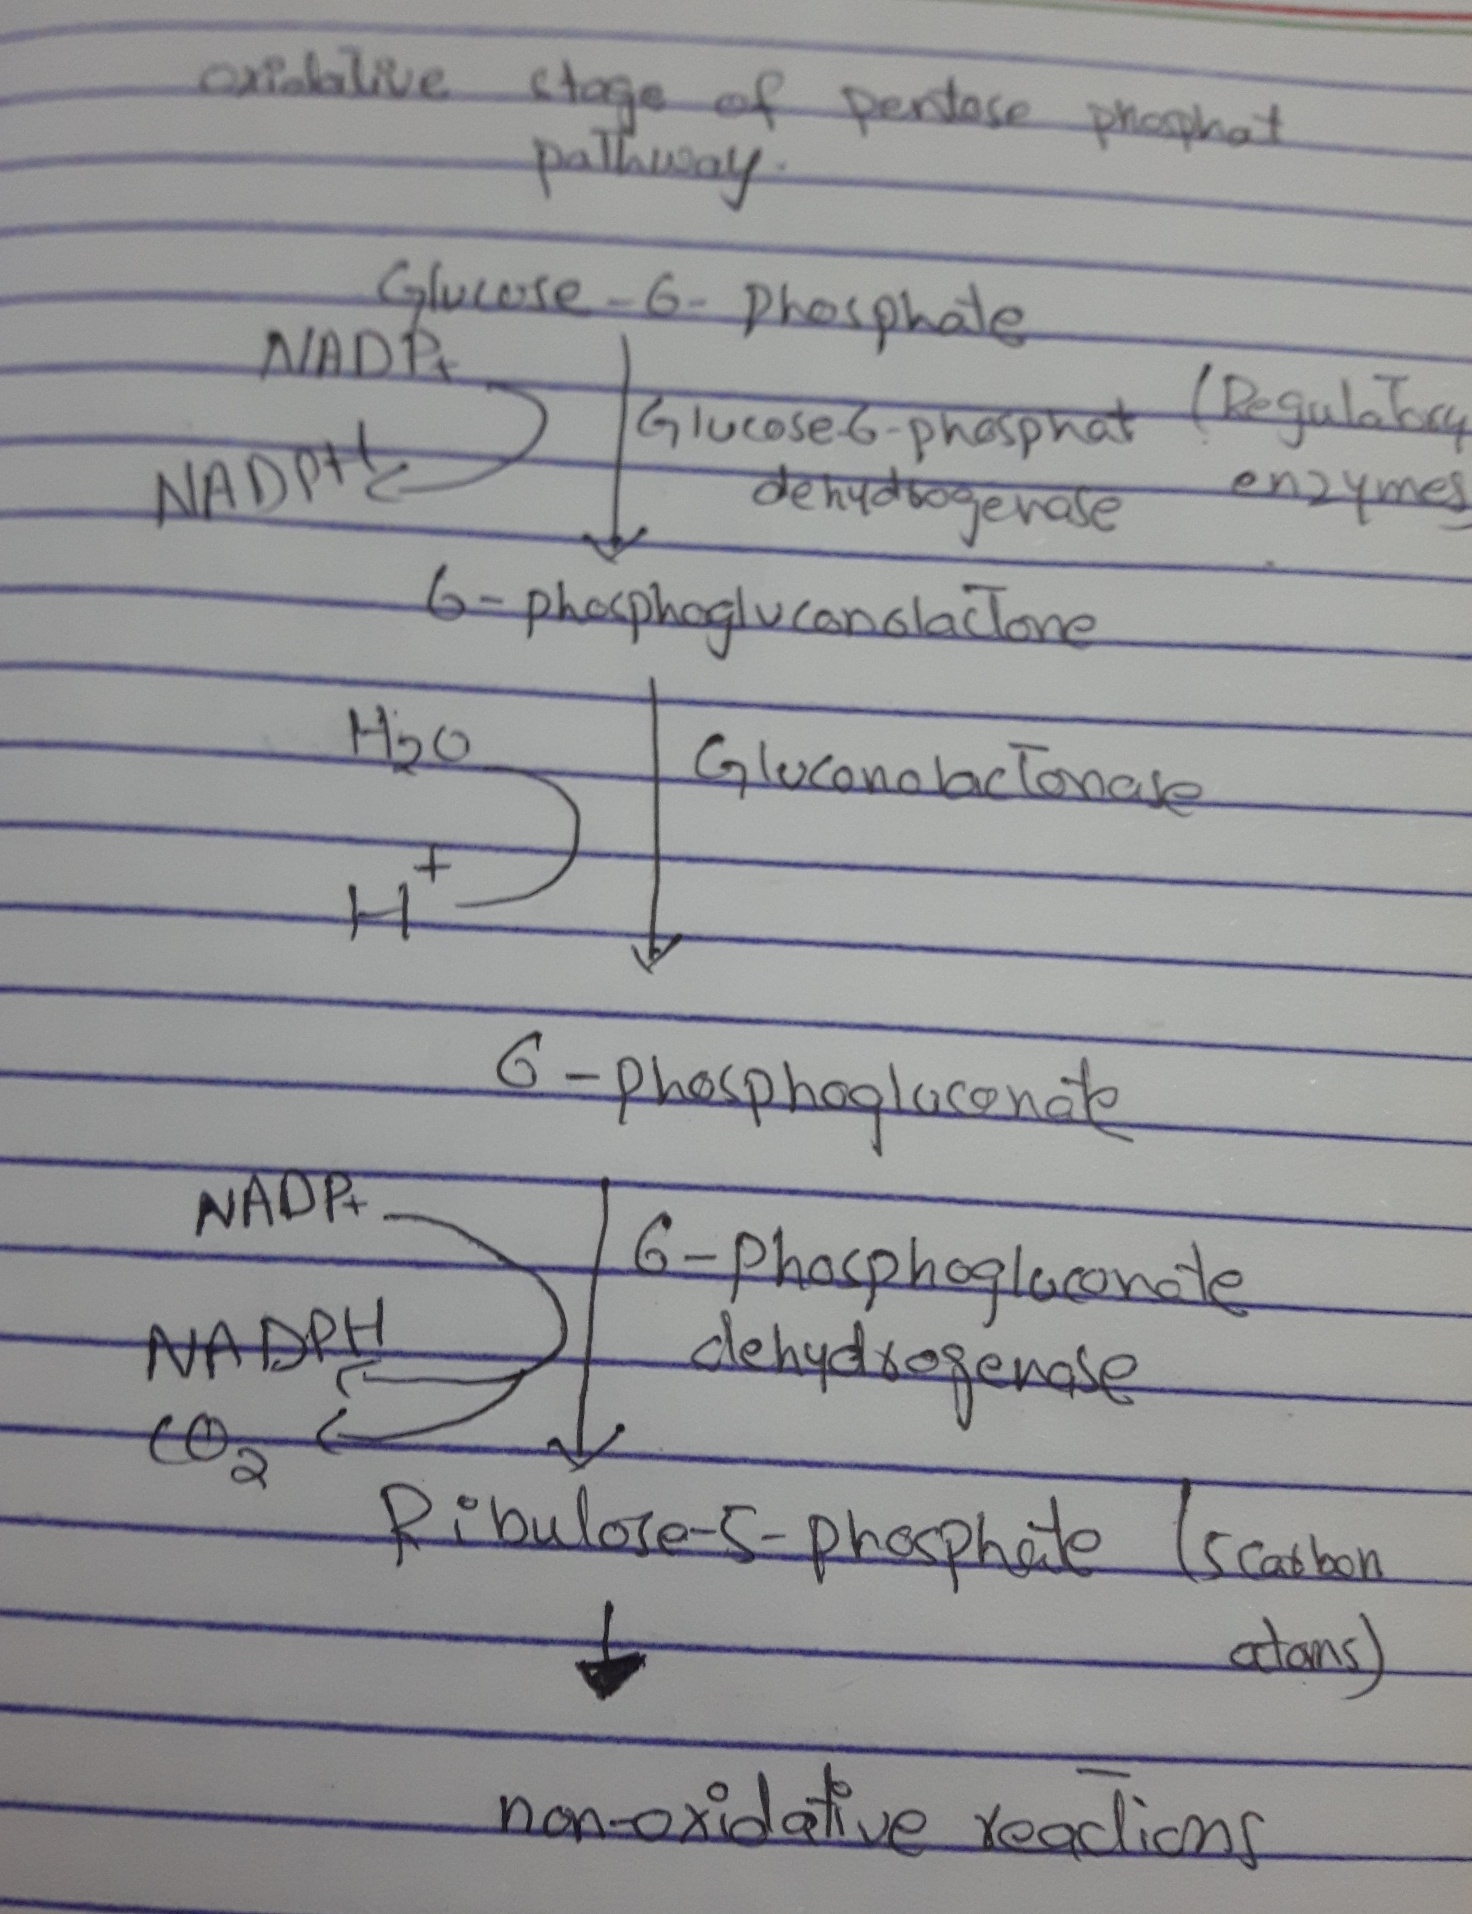 oxidative stage of pentose phosphat
pathway.
Glucose-6-phosphate
NADP+
Glucose-6-phosphat (Regulatory
NADPH
dehydrogenase enzymes
6-phosphogluconolactone
H2O
Gluconolactonase
H+
6-phosphogluconate
NADP+
6-phosphogluconate
NADPH
dehydrogenase
CO2
Ribulose-5-phosphate (5 carbon
atoms)
non-oxidative reactions